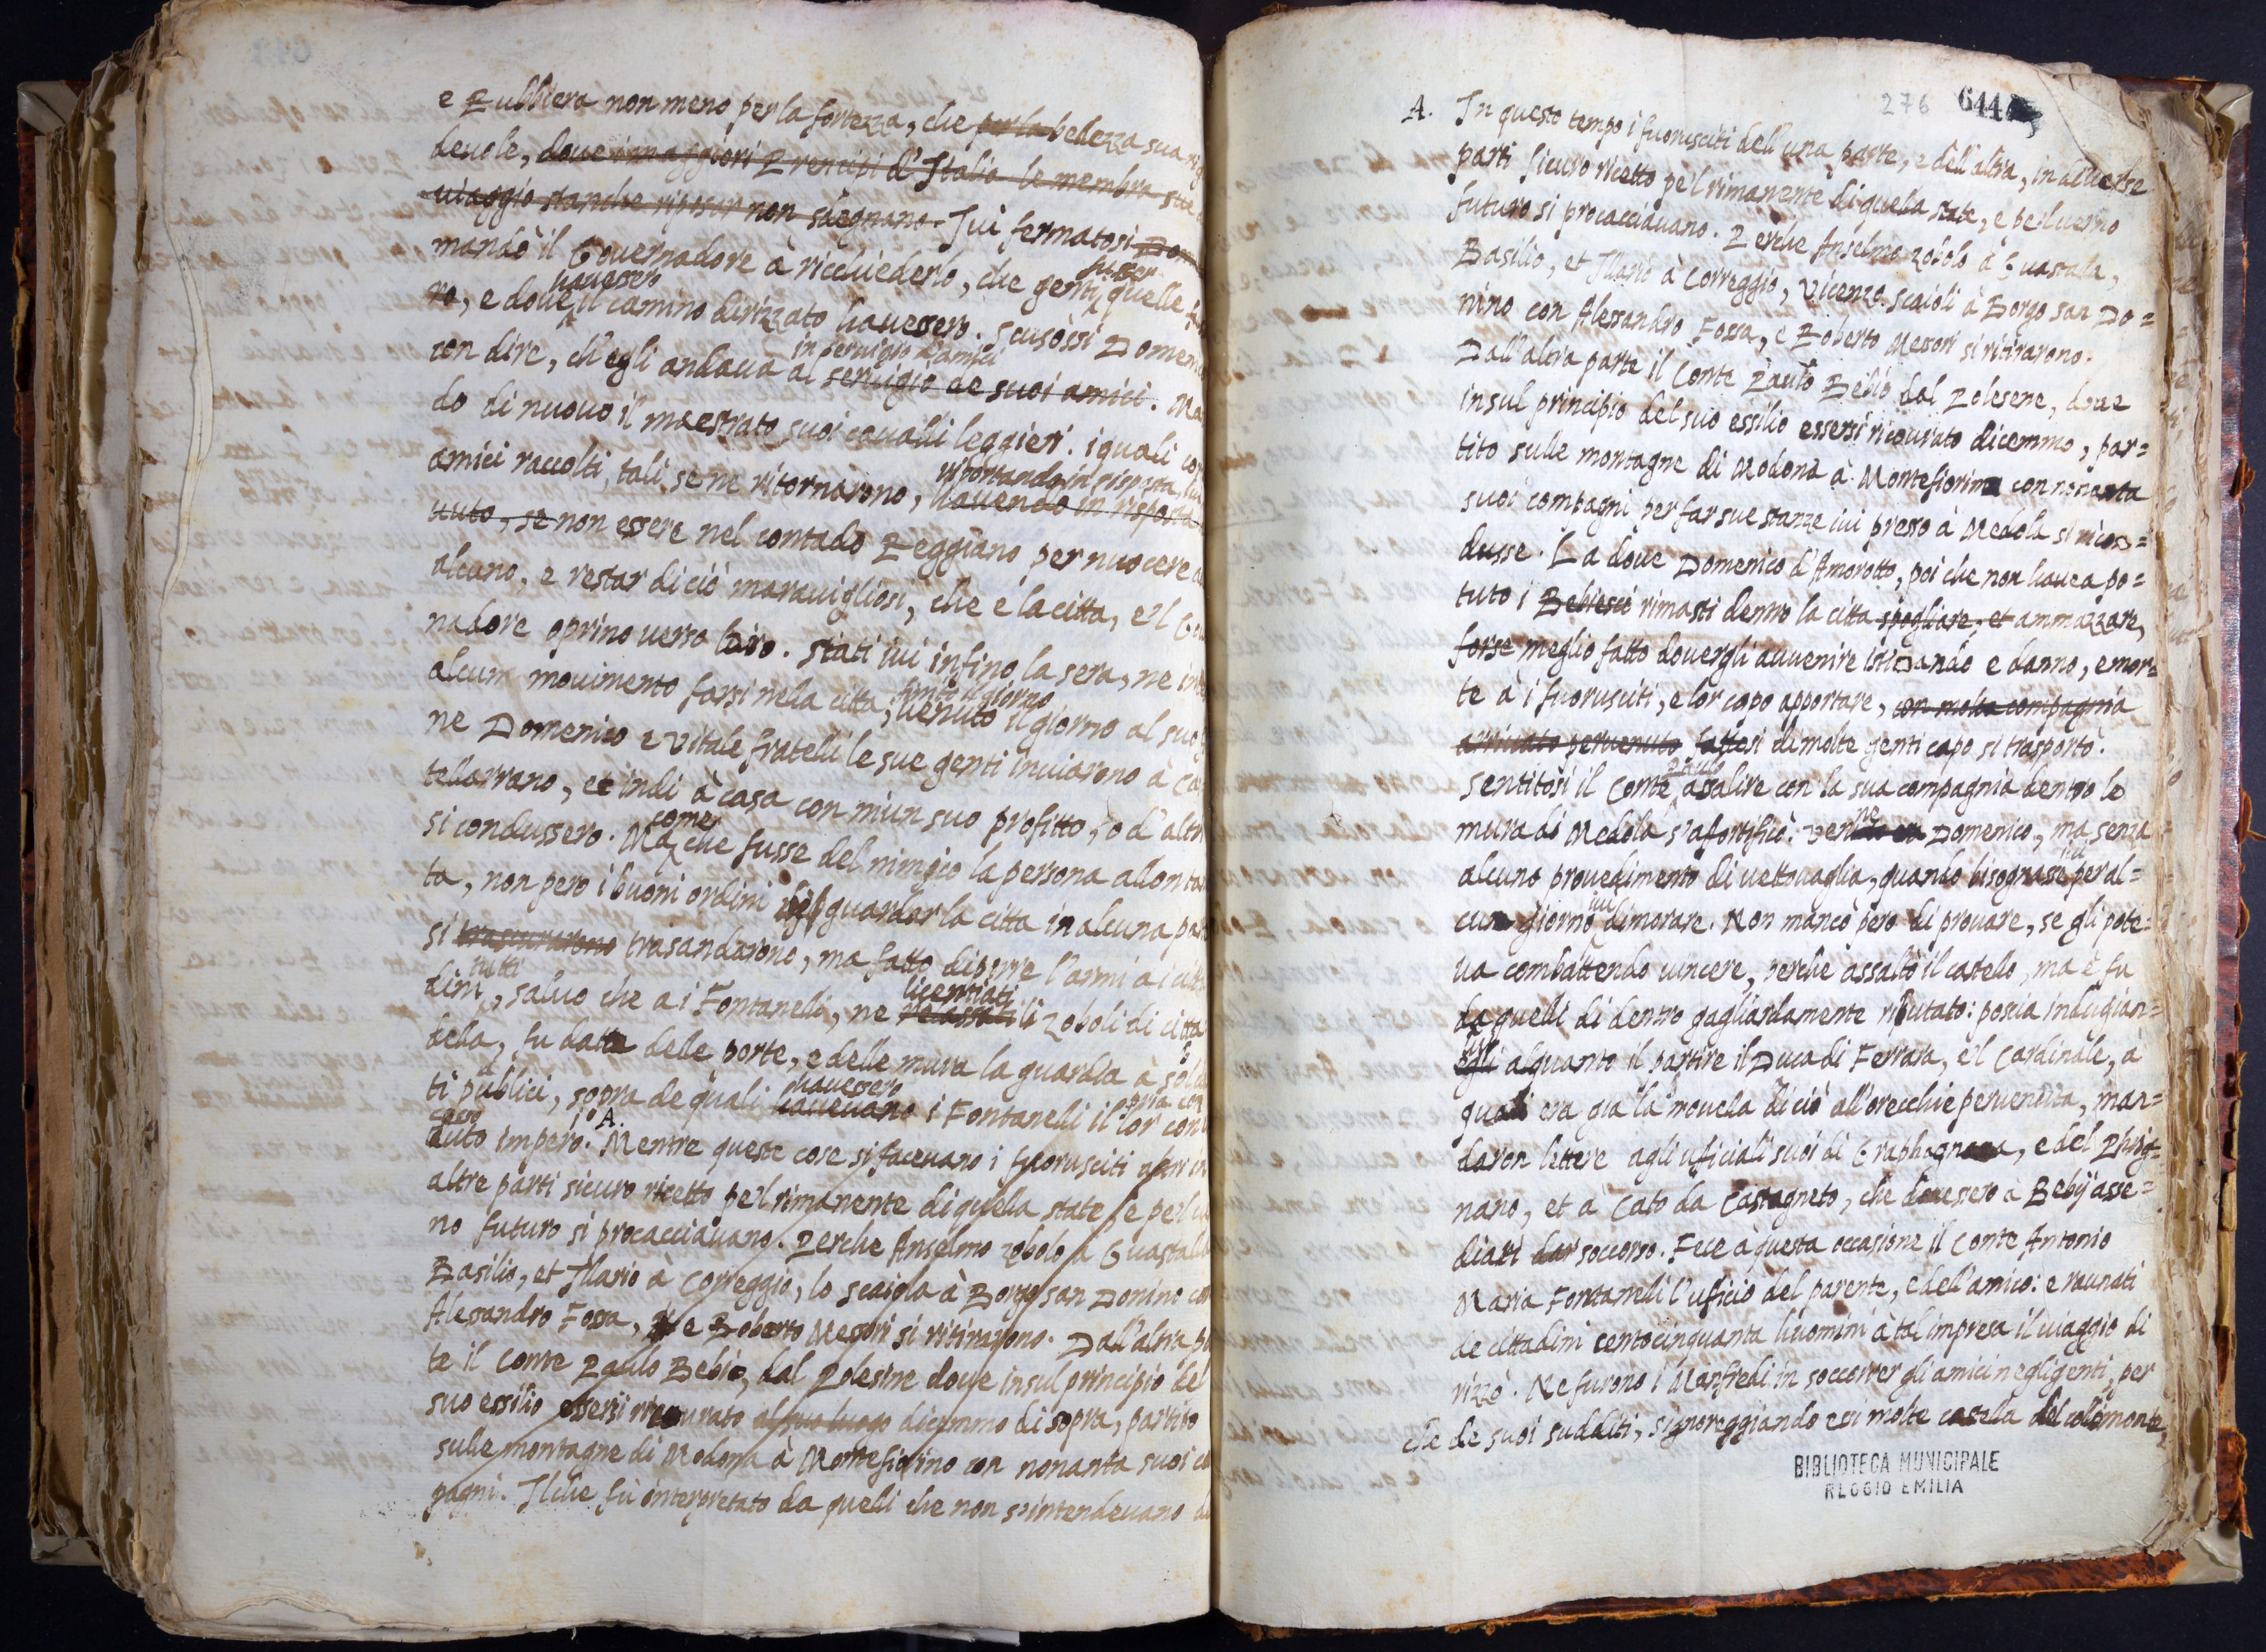 e Rubbiera non meno per la fortezza, che per la bellezza sua
deuole, doue i maggiori Prencipi d'Italia le membra
uiaggio stanche riposar non sdegnano. Iui fermatosi
mandò il Gouernadore à ricchiederlo, che genti quelle
fusser
ro, e doue il camino dirizzato hauessero. Scusossi Domen
hauessero
con dire, ch'egli andaua al seruigio de suoi amici. Ma
in seruigio d'amici
do di nuouo il maestrato suoi caualli leggieri. i quali
amici raccolti, tali se ne ritornarono, hauendo in risposta
riportando in risposta
uuto, se non essere nel contado Reggiano per nuocere
alcuno, e restar di ciò marauigliosi, che e la citta, e'l
nadore oprino uerso loro. Stati iui infino la sera, ne
alcun mouimento farsi nella citta, uenuto il giorno al suo
finito il giorno
ne Domenico e Vitale fratelli le sue genti inuiarono à Ca
tellarrano, et indi à casa con niun suo profitto, o d'altri
si condussero. Ma che fusse del nimico la persona allonta
come
ta, non pero i buoni ordini guardar la citta in alcuna par
si trascurarono trasandarono, ma fatto diporre l'armi a i citta
dini, saluo che a i Fontanelli, ne li Zoboli di citta
tutti
licentiati
della, fu data delle porte, e delle mura la guardia à sol
ti publici, sopra de quali haueuano i Fontanelli il lor con
hauessero
impero. A. Mentre queste cose si faceuano i fuorusciti
altre parti sicuro ricetto pe'l rimanente di quella state, e pe'l
no futuro si procacciauano. Perche Anselmo Zobolo à Guastalla
Basilio, et Ilario à Correggio, lo Scaiola à Borgo san Donino con
Alessandro Fossa, e Roberto Messori si ritirarono. Dall'altra
te il Conte Paulo Bebio, dal Polesine doue insul principio del
suo essilio essersi ricourato al suo luogo dicemmo di sopra, partito
sulle montagne di Modona à Montefiorino con nonanta suoi
pagni. Ilche fù interpretato da quelli che non s'intendeuano
276 644
A. In questo tempo i fuorusciti dell'una parte, e dell'altra, in diuerse
parti sicuro ricetto pe'l rimanente di quella state, e pe'l uerno
futuro si procacciauano. Perche Anselmo Zobolo à Guastalla,
Basilio, et Ilario à Correggio, Vicenzo Scaioli à Borgo san Do=
nino con Alessandro Fossa, e Roberto Messori si ritirarono.
Dall'altra parte il Conte Paulo Bebio dal Polesene, doue
insul principio del suo essilio essersi ricourato dicemmo, par=
tito sulle montagne di Modona à Montefiorino con nonanta
suoi compagni per far sue stanze iui presso à Medola si ricon=
dusse. La doue Domenico d'Amorotto, poi che non hauea po=
tuto i Bebieschi rimasti dentro la citta spogliare, et ammazzare,
forse meglio fatto douergli auuenire istimando e danno, e mor=
te à i fuorusciti, e lor capo apportare, con molta compagnia
arriuato peruenuto fattosi di molte genti capo si trasportò.
Sentitosi il Conte assalire con la sua compagnia dentro le
Paulo
mura di Medola s'affortificò: Venne Domenico, ma senza
alcuno prouedimento di uettouaglia, quando bisognasse per al=
cun giorno dimorare. Non mancò pero di prouare, se gli pote=
iui
ua combattendo uincere, perche assaltò il castello, ma e fu
da quelli di dentro gagliardamente ributato: poscia indugian=
egli alquanto il partire il Duca di Ferrara, e'l Cardinale, a
quali era gia la nouella di ciò all'orecchie peruenuta, man=
daron lettere agli uficiali suoi di Graphagnana, e del Phrig=
nano, et a Cato da Castagneto, che douessero a Bebij asse=
diati dar soccorso. Fece à questa occasione il Conte Antonio
Maria Fontanelli l'uficio del parente, e dell'amico: e raunati
de cittadini centocinquanta huomini a tal impresa il uiaggio di
rizzò. Ne furono i Manfredi in soccorrer gli amici negligenti, per
che de suoi sudditi, signoreggiando essi molte castella del colle monte,
BIBLIOTECA MUNICIPALE
REGGIO EMILIA